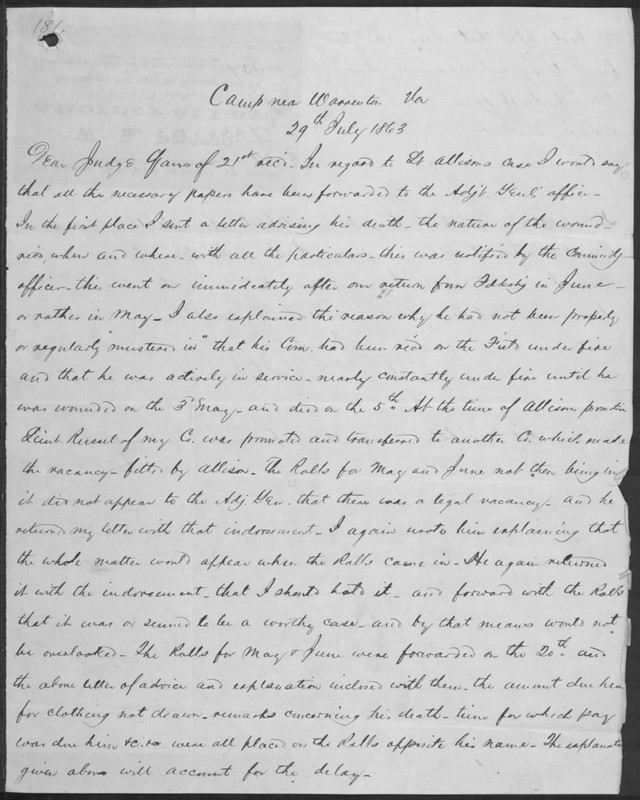 181.
Camp near Warrenton Va
29th July 1863
Dear Judge. Yours of 21st rec'd. In regard to Lt Allisons case I would say
that all the necessary papers have been forwarded to the Adjt. Genl's office -
In the first place I sent a letter advising his death - the nature of the wound -
recd when and where - with all the particulars - this was certified by the Commdg
officer - this went on immideately after our return from Fdksbg in June -
or rather in May - I also explained the reason why he had not been properly
or regularly "mustered in" that his Com. had been recd on the Field under fire
and that he was actively in service - nearly constantly under fire until he
was wounded on the 3d May - and died on the 5th. At the time of Allisons promotion
Lieut. Russel of my Co. was promoted and transferred to another Co. which made
the vacancy - filled by Allison - The Rolls for May and June not then being in,
it did not appear to the Adj. Gen. that there was a legal vacancy - and he
returned my letter with that indorsement - I again wrote him explaining that
the whole matter would appear when the Rolls came in - He again returned
it with the indorsement - that I should hold it - and forward with the Rolls
that it was or seemed to be a worthy case - and by that means would not
be overlooked - The Rolls for May & June were forwarded on the 20th and
the above letter of advice and explanation inclosed with them - the amount due him
for clothing not drawn - remarks concerning his death - time for which pay
was due him &c. &c were all placed on the Rolls opposite his name - The explanation
given above will account for the delay -